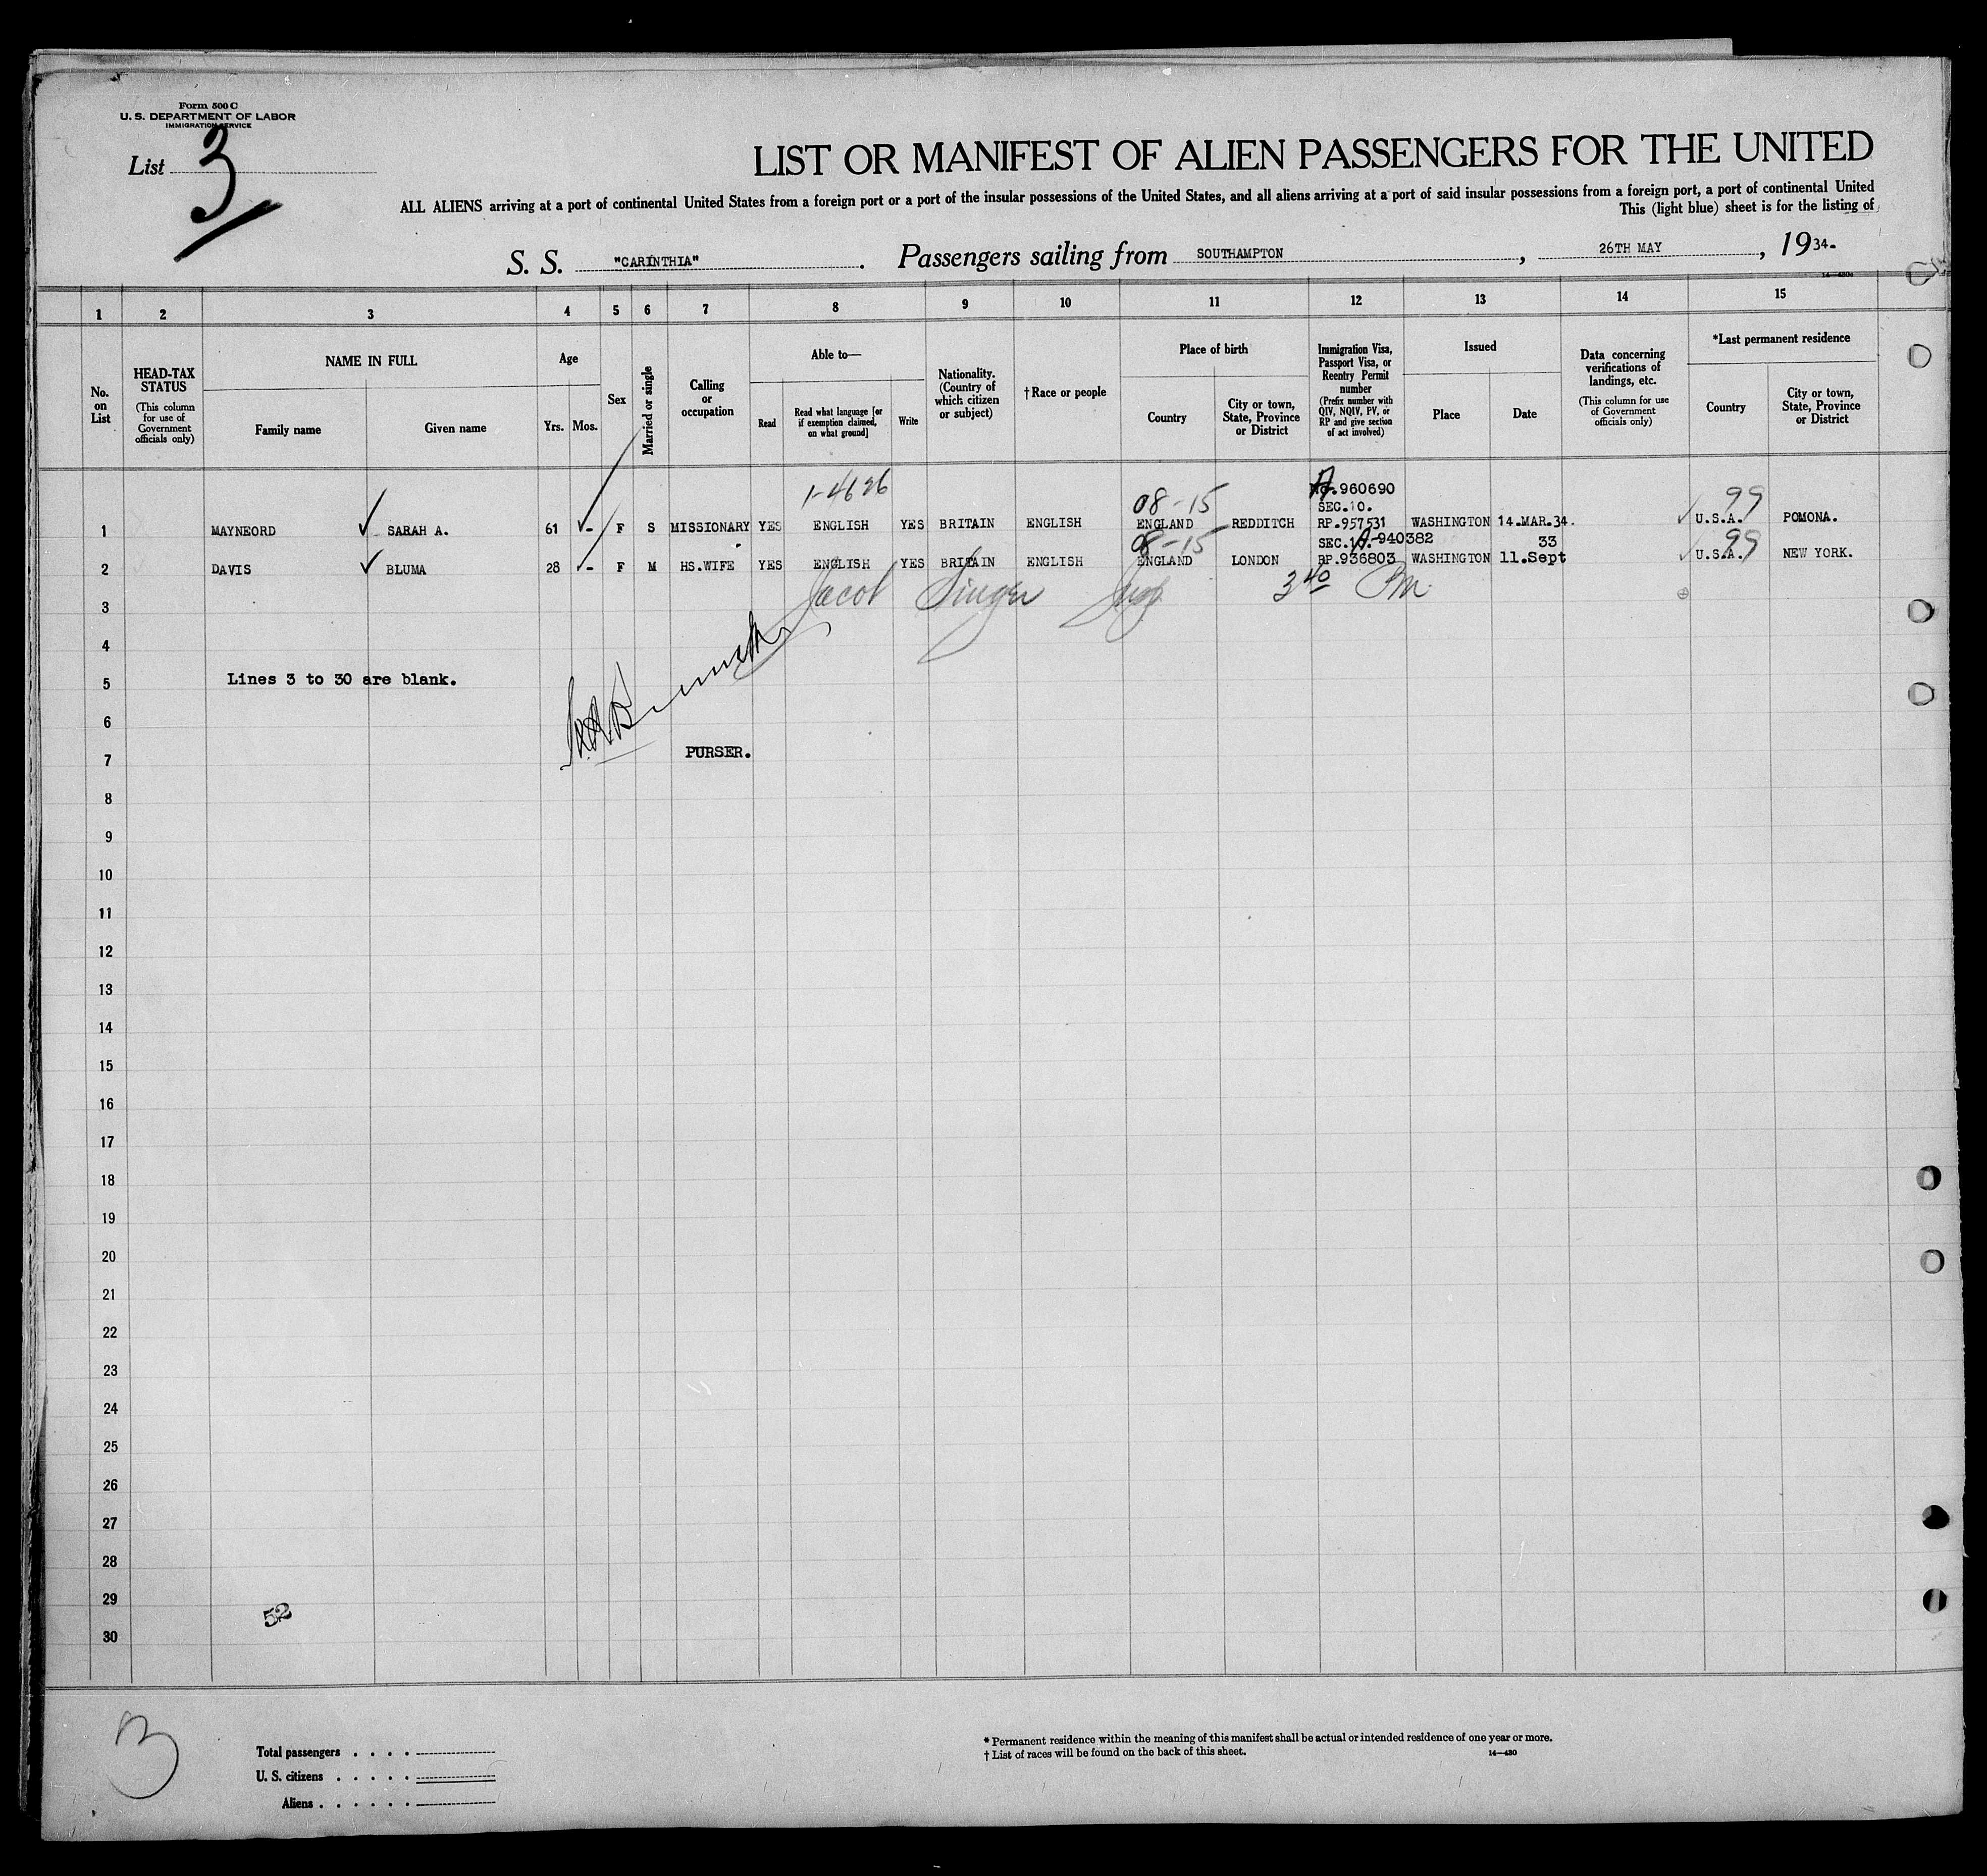 Form 500 C
U. S. DEPARTMENT OF LABOR
IMMIGRATION SERVICE
List 3
LIST OR MANIFEST OF ALIEN PASSENGERS FOR THE UNITED
ALL ALIENS arriving at a port of continental United States from a foreign port or a port of the insular possessions of the United States, and all aliens arriving at a port of said insular possessions from a foreign port, a port of continental United
This (light blue) sheet is for the listing of
S. S. "CARINTHIA" . Passengers sailing from SOUTHAMPTON , 26TH MAY , 19 34-
1 2 3 4 5 6 7 8 9 10 11 12 13 14 15
No. on List
HEAD-TAX STATUS
(This column for use of Government officials only)
NAME IN FULL
Family name Given name
Age
Yrs. Mos.
Sex
Married or single
Calling or occupation
Able to—
Read
Read what language [or if exemption claimed, on what ground]
Write
Nationality. (Country of which citizen or subject)
† Race or people
Place of birth
Country
City or town, State, Province or District
Immigration Visa, Passport Visa, or Reentry Permit number
(Prefix number with QIV, NQIV, PV, or RP and give section of act involved)
Issued
Place Date
Data concerning verifications of landings, etc.
(This column for use of Government officials only)
*Last permanent residence
Country
City or town, State, Province or District
1-4626 08-15 960690 99
SEC.10.
1 MAYNEORD SARAH A. 61 - F S MISSIONARY YES ENGLISH YES BRITAIN ENGLISH ENGLAND REDDITCH RP.957531 WASHINGTON 14.MAR.34. U.S.A. POMONA.
08-15 A-940382 33 99
2 DAVIS BLUMA 28 - F M HS.WIFE YES ENGLISH YES BRITAIN ENGLISH ENGLAND LONDON RP.936803 WASHINGTON 11.Sept U.S.A. NEW YORK.
3 Jacob Singer 3 40 PM
4
5 Lines 3 to 30 are blank.
6
7 PURSER.
8
9
10
11
12
13
14
15
16
17
18
19
20
21
22
23
24
25
26
27
28
29
52
30
3
Total passengers . . . .
U. S. citizens . . . . .
Aliens . . . . . .
* Permanent residence within the meaning of this manifest shall be actual or intended residence of one year or more.
† List of races will be found on the back of this sheet. 14—430